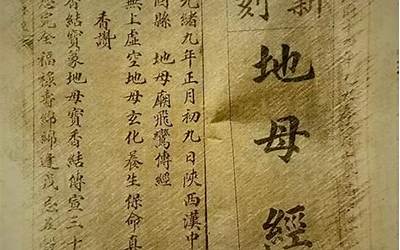 新刻
地母經
光緒九年正月初九日陝西漢中
固縣 地母廟飛鸞傳經
無上虛空地母玄化養生保命真
香讚
香結寶篆地母寶香結傳宣三十
完全福祿壽綿綿逢戊忌